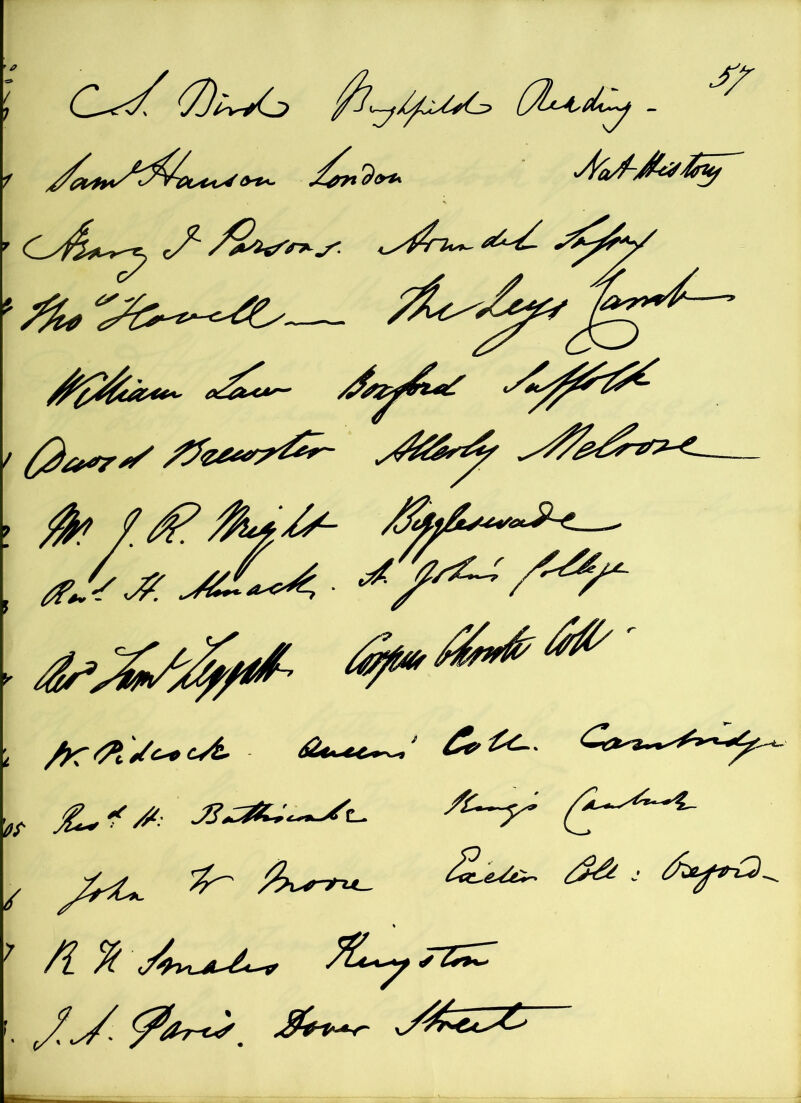 57
C.S. Bird Burghfield Reading -
Saml Hanson London Nat History
Henry I Parsons. Arundel Sussex
Thos Hovell — The Leys Camb
William Law Boxford Suffolk
David Brewster Allerly Melrose
Mr. J. R. Wright Biggleswade
Revd. H. Almack. St. John's College
Revd Saml Leggatt Corpus Christi Coll.
W. Pidcock Queens' Coll. Cambridge
05 Revd. H: Battiscombe King's Cambridge
6 John W Moore Exeter Coll: Oxford -
7 R H Smales Kingston
J. A. Paris. Dover Street